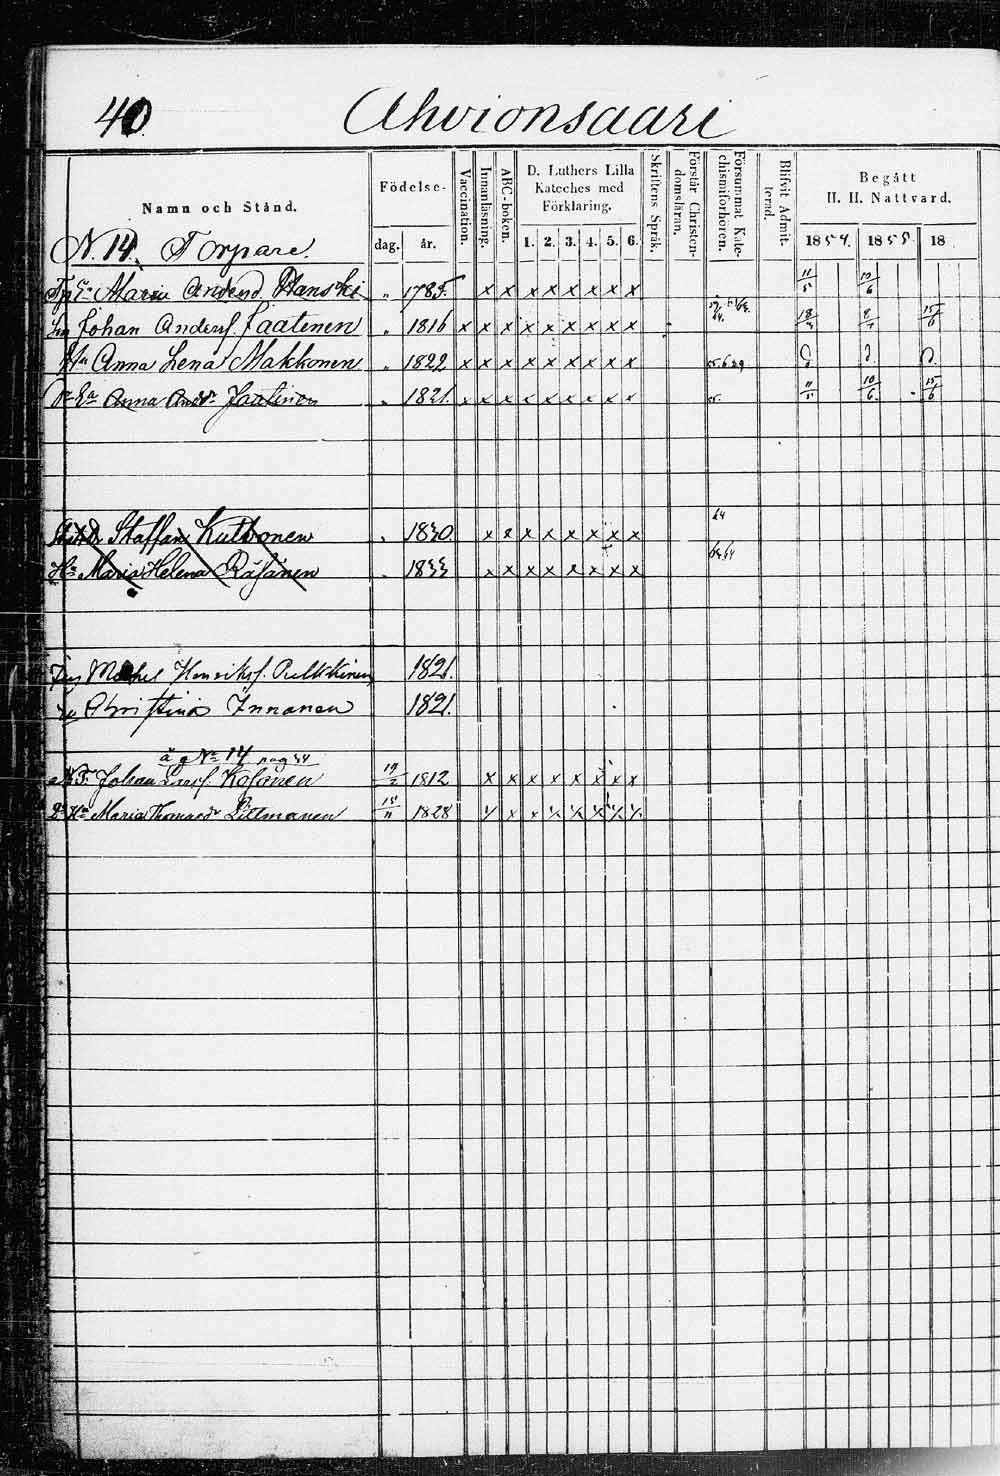 40 Ahvionsaari
Namn och Stånd.
Födelse-
dag. år.
Vaccination.
Innanläsning.
ABC-boken.
D. Luthers Lilla
Kateches med
Förklaring.
1. 2. 3. 4. 5. 6.
Skriftens Språk.
Förstår Christen-
domsläran.
Försummat Kate-
chismiförhören.
Blifvit Admit-
terad.
Begått
H. H. Nattvard.
1857. 1858 18
N. 14. Torpare.
Maria Andersd. Hanski " 1785. x x x x x x x x 11/5 10/6
Johan Andersf. Jaatinen " 1816 x x x x x x x x x 18/3 8/7 15/6
Hu Anna Lena Makkonen " 1822 x x x x x x x x x
Anna And. Jaatinen " 1821. x x x x x x x x x 11/5 10/6 15/6
64
Staffan Kultonen " 1830 x x x x x x x x
Hu Maria Helena Räsänen " 1833 x x x x x x x x
Henriksf. Pulkkinen 1821.
Christina Innanen 1821.
å g No 14 pag 44
Johan Larsf. Kosonen 1812 x x x x x x x x
Hu Maria Thomasdr Pittmanen 1828